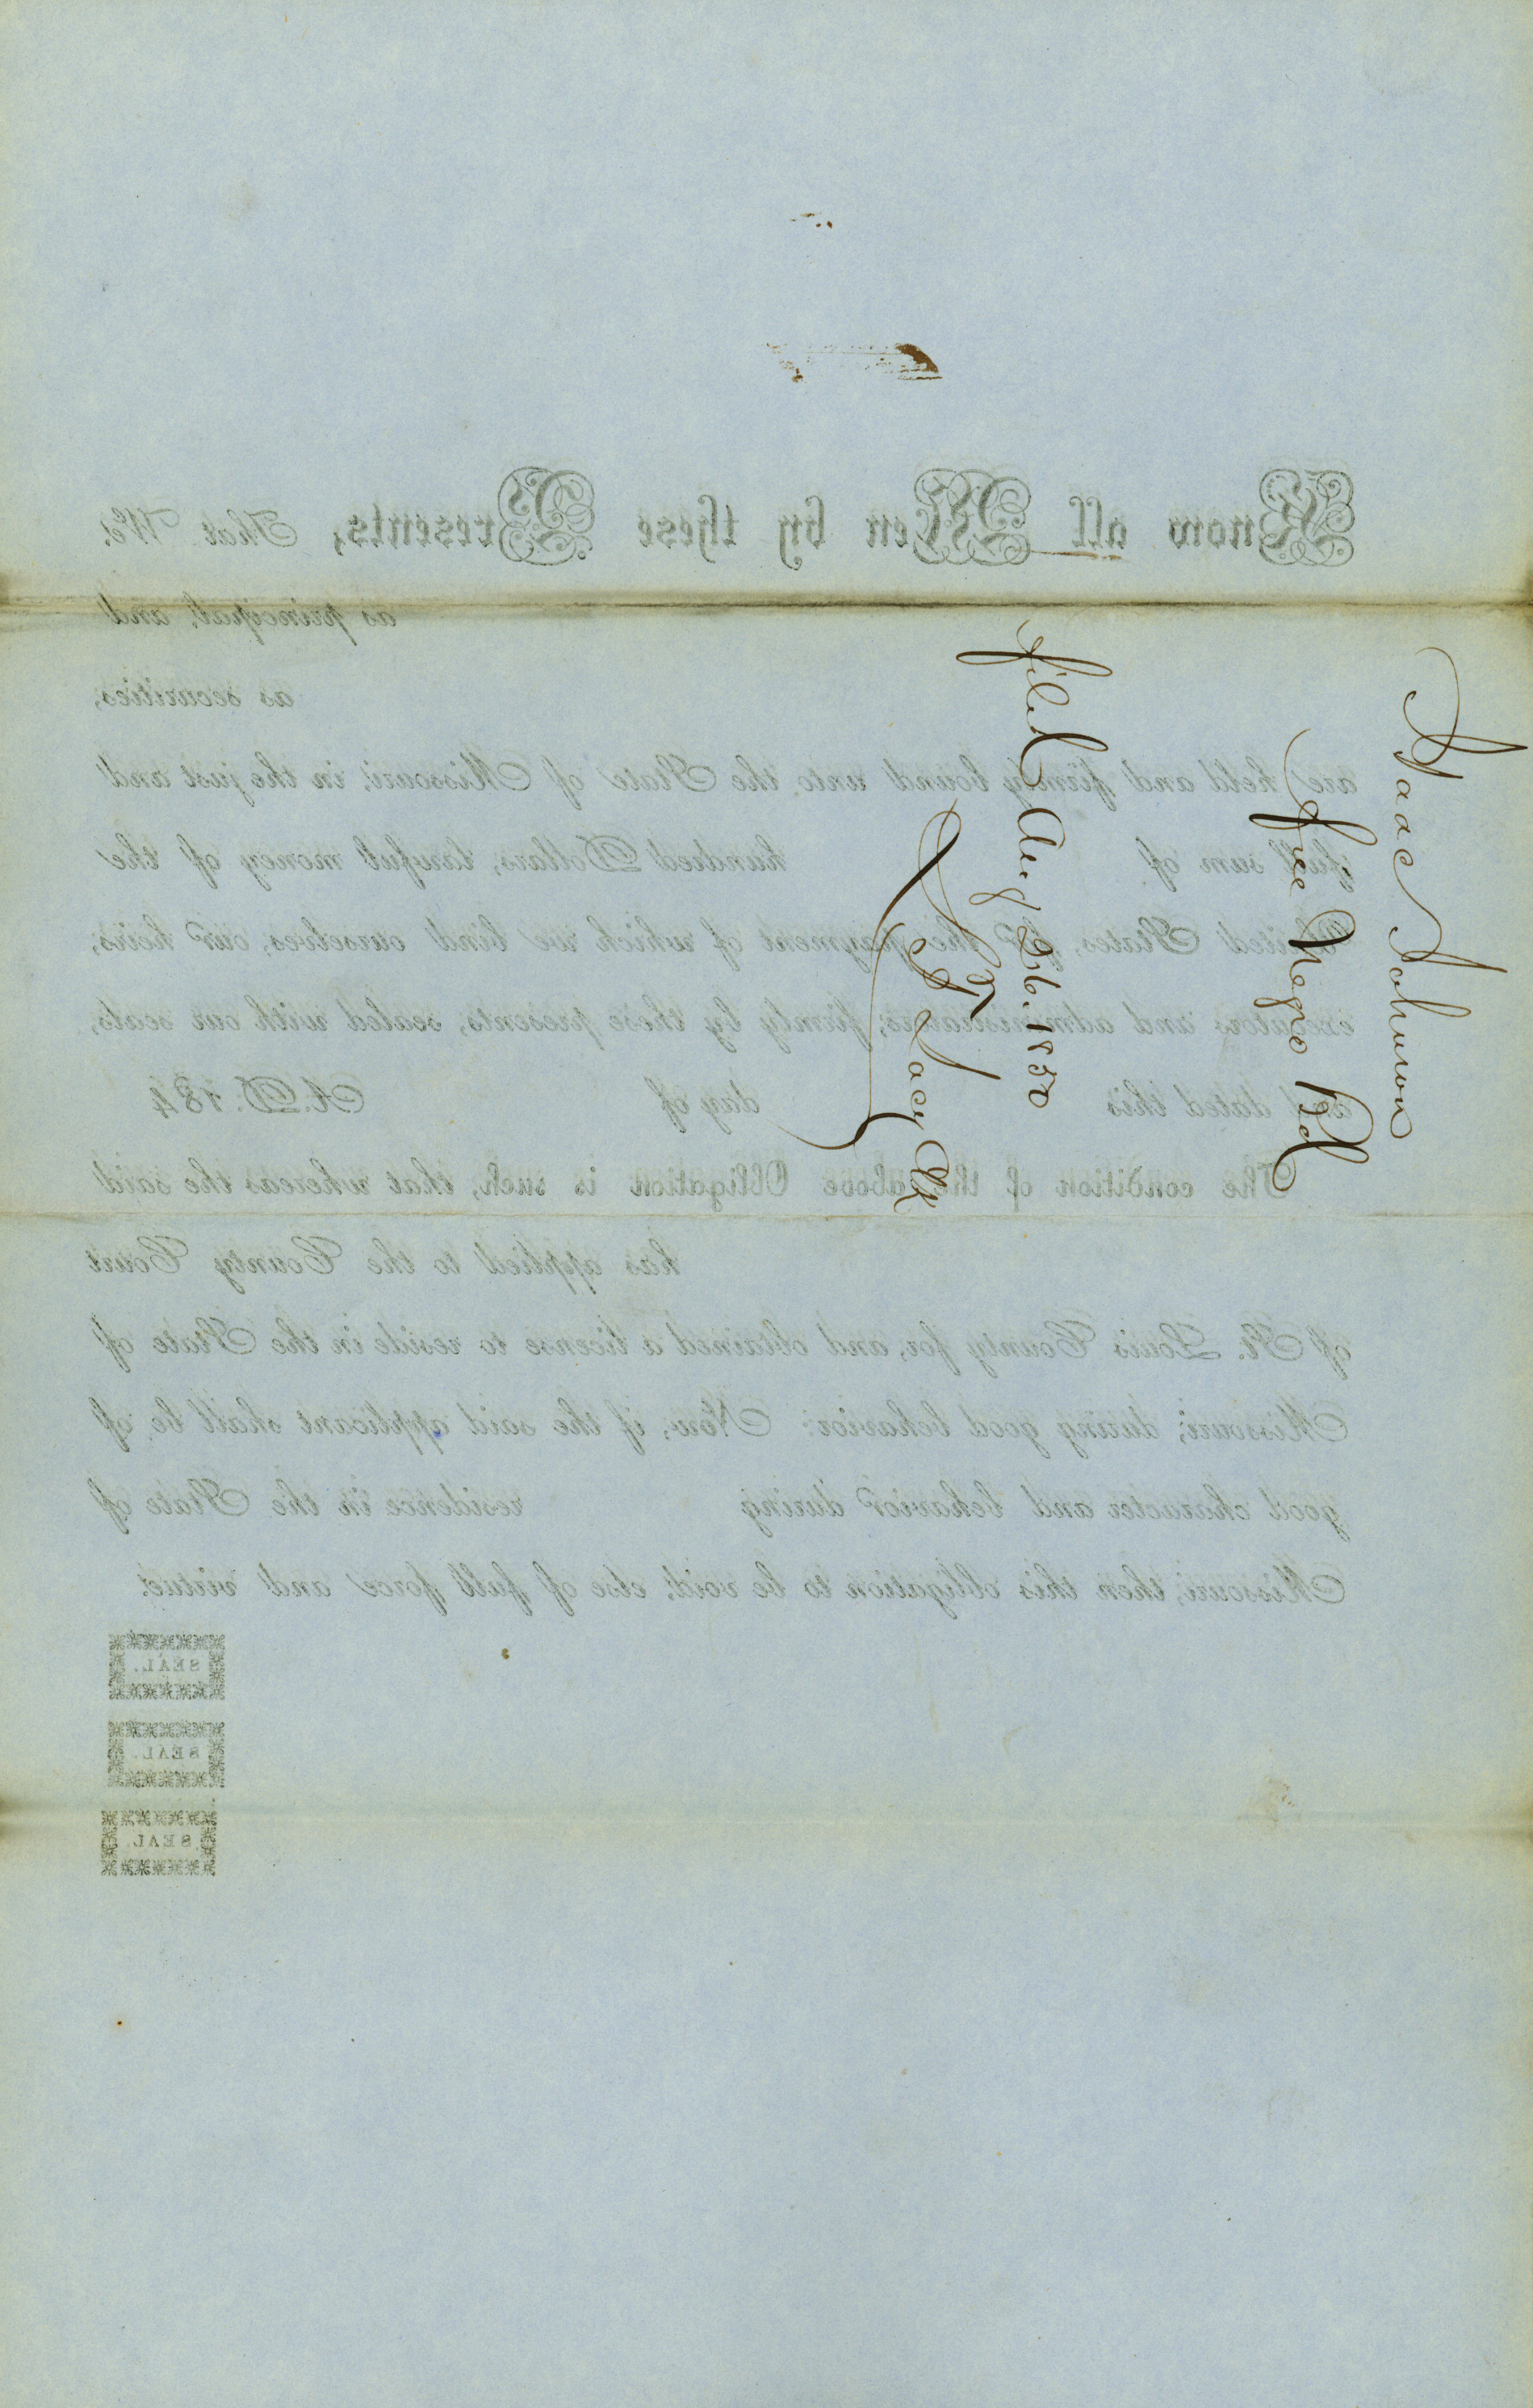 Isaac Johnson
free Negro Bd
filed Aug 26. 1850
S. T. Lacy Ck
Know all Men by these Presents, That We,
as principal, and
as securities,
are held and firmly bound unto the State of Missouri, in the just and
full sum of hundred Dollars, lawful money of the
United States, for the payment of which we bind ourselves, our heirs,
executors and administrators, firmly by these presents, sealed with our seals,
and dated this day of A. D. 184
The condition of the above Obligation is such, that whereas the said
has applied to the County Court
of St. Louis County for, and obtained a license to reside in the State of
Missouri, during good behavior: Now, if the said applicant shall be of
good character and behavior during residence in the State of
Missouri, then this obligation to be void; else of full force and virtue.
SEAL.
SEAL.
SEAL.